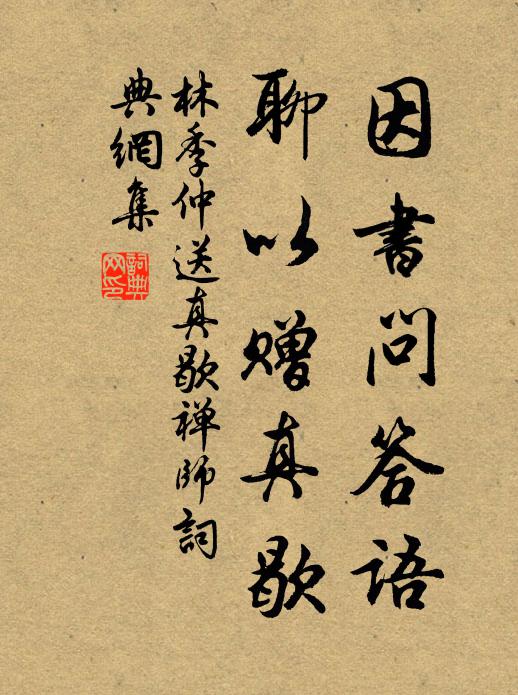 因書問答語
聊以赠真歇
林季仲送真歇禅师詞
典網集
詞典网印